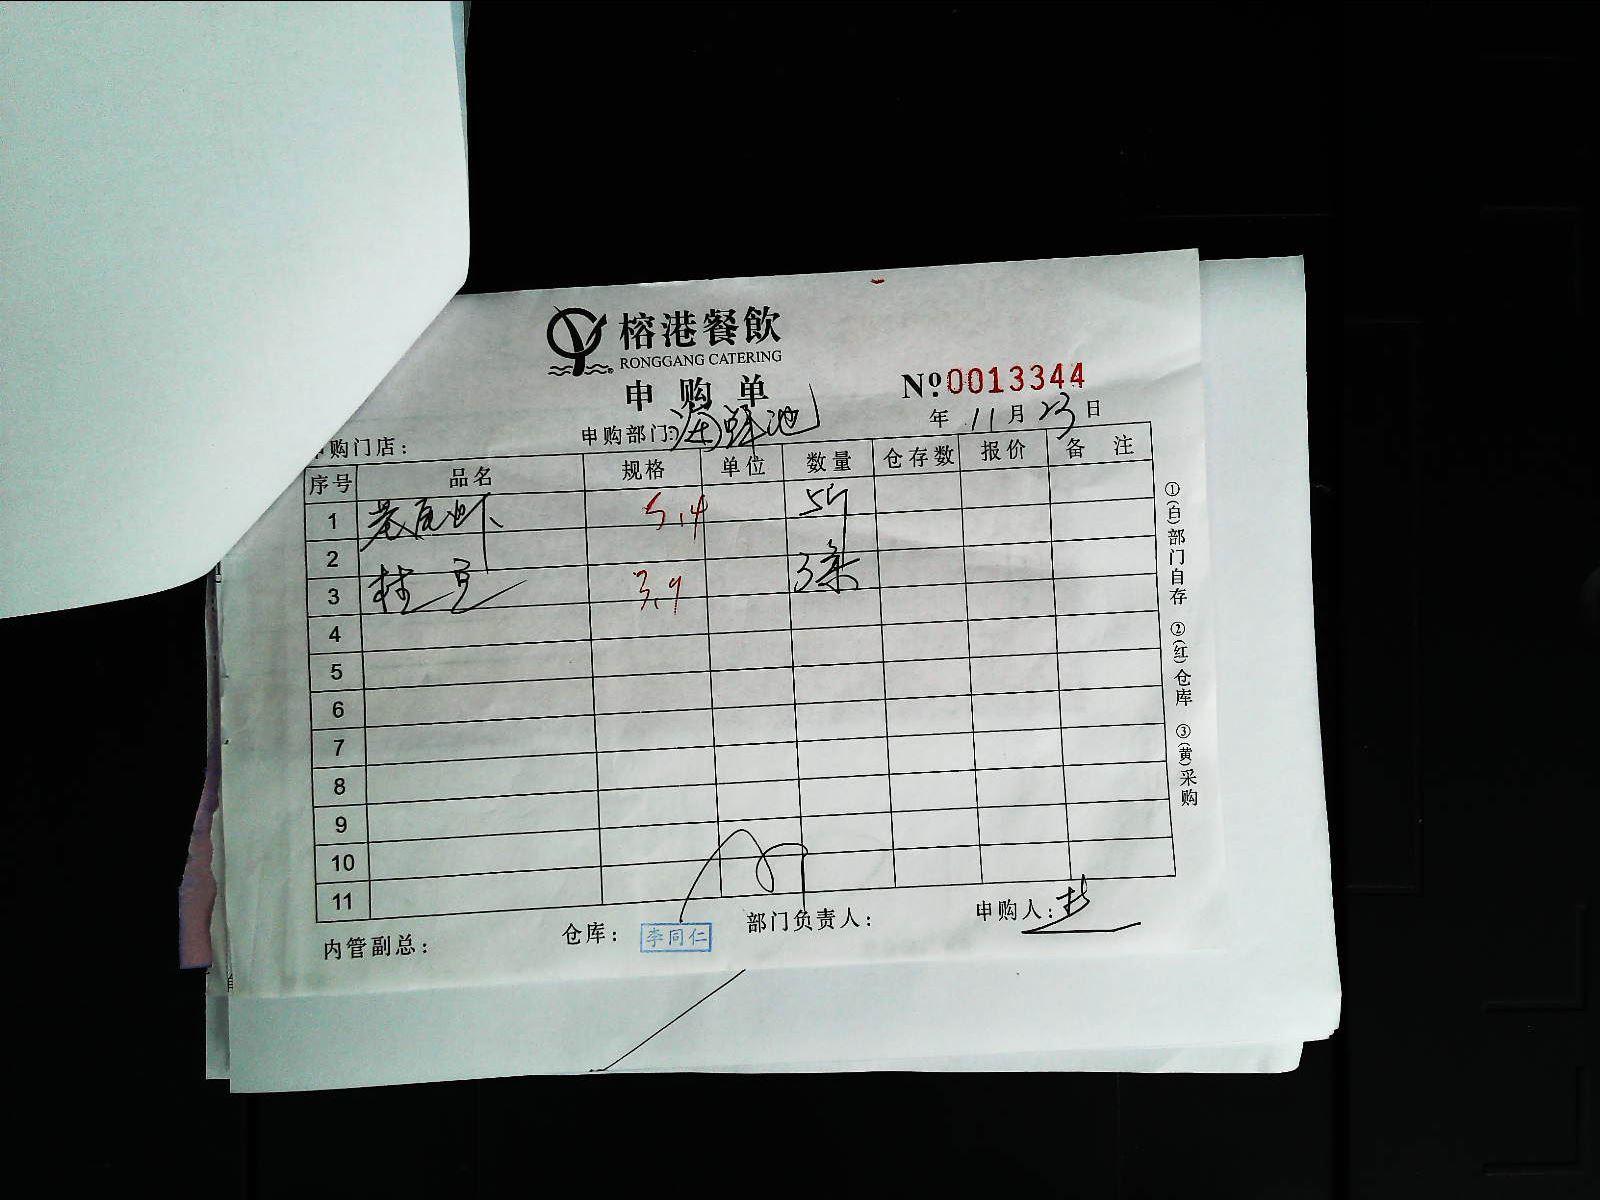 榕港餐飲
RONGGANG CATERING
申购单
№0013344
年 11月23日
购门店：
申购部门：海鲜池
序号 品名 规格 单位 数量 仓存数 报价 备注
1 5.4 5斤
2
3 桂 3.9 3条
4
5
6
7
8
9
10
11
内管副总：
仓库： 李同仁
部门负责人：
申购人：
①(白)部门自存 ②(红)仓库 ③(黄)采购